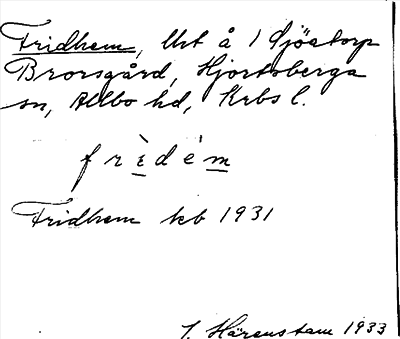 Fridhem, lht å 1 Sjöatorp
Brorsgård, Hjortsberga
sn, Allbo hd, Krbs l.
frèdém
Fridhem kb 1931
J. Härenstam 1933